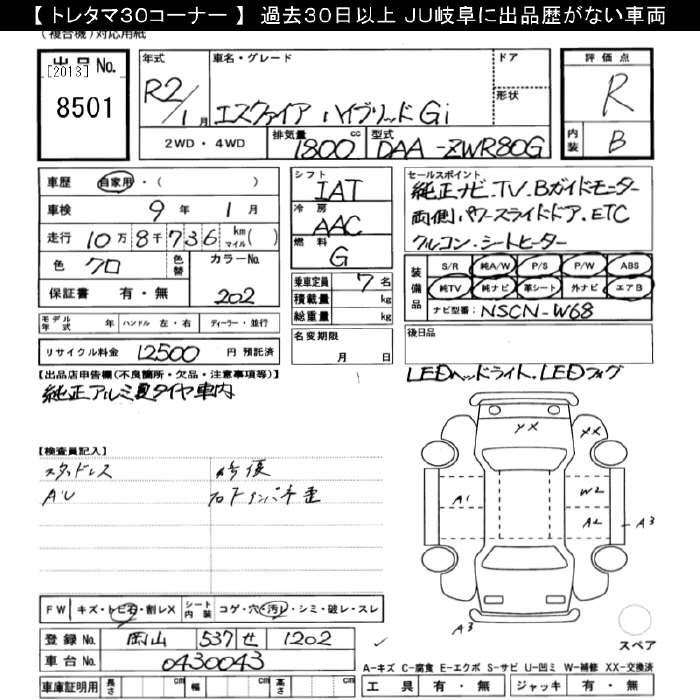 【 トレタマ30コーナー 】 過去30日以上 JU岐阜に出品歴がない車両
(複合機)対応用紙
出品No.
[2013]
8501
年式
R2/1月
車名・グレード
エスクァイア ハイブリッド Gi
ドア
形状
2WD・4WD
排気量
1800 cc
型式
DAA-ZWR80G
評価点
R
内装
B
車歴
自家用・( )
車検 9年 1月
走行 10万8千736 km マイル( )
色 クロ
色替
カラーNo.
202
保証書 有・無
シフト
IAT
冷房
AAC
燃料
G
乗車定員 7名
積載量 kg
総重量 kg
セールスポイント
純正ナビ.TV.Bガイドモニター
両側パワースライドドア.ETC
クルコン.シートヒーター
装備品
S/R 純A/W P/S P/W ABS
純TV 純ナビ 革シート 外ナビ エアB
ナビ型番: NSCN-W68
モデル年式 年 ハンドル 左・右 ディーラー・並行
名変期限
月 日
後日品
リサイクル料金 12500 円 預託済
LEDヘッドライト.LEDフォグ
【出品店申告欄(不良箇所・欠品・注意事項等)】
純正アルミ夏タイヤ車内
【検査員記入】
スタッドレス
AU
修復
XX
XX
A1
W2
A2
A3
A3
FW キズ・トビ石・割レX
シート内装 コゲ・穴・汚レ・シミ・破レ・スレ
登録No. 岡山 537 せ 1202
車台No. 0430043
スペア
A-キズ C-腐食 E-エクボ S-サビ U-凹ミ W-補修 XX-交換済
車庫証明用 長さ cm 幅 cm 高さ cm
工具 有・無 ジャッキ 有・無